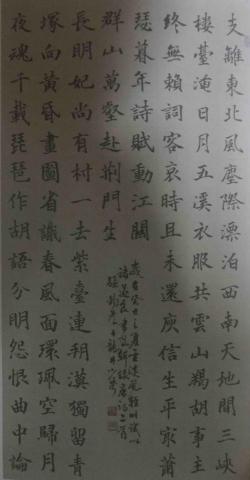 支離東北風塵際漂泊西南天地間三峽
樓臺淹日月五溪衣服共雲山羯胡事主
終無賴詞客哀時且未還庾信生平最蕭
瑟暮年詩賦動江關
群山萬壑赴荊門生
長明妃尚有村一去紫臺連朔漠獨留青
塚向黃昏畫圖省識春風面環珮空歸月
夜魂千載琵琶作胡語分明怨恨曲中論